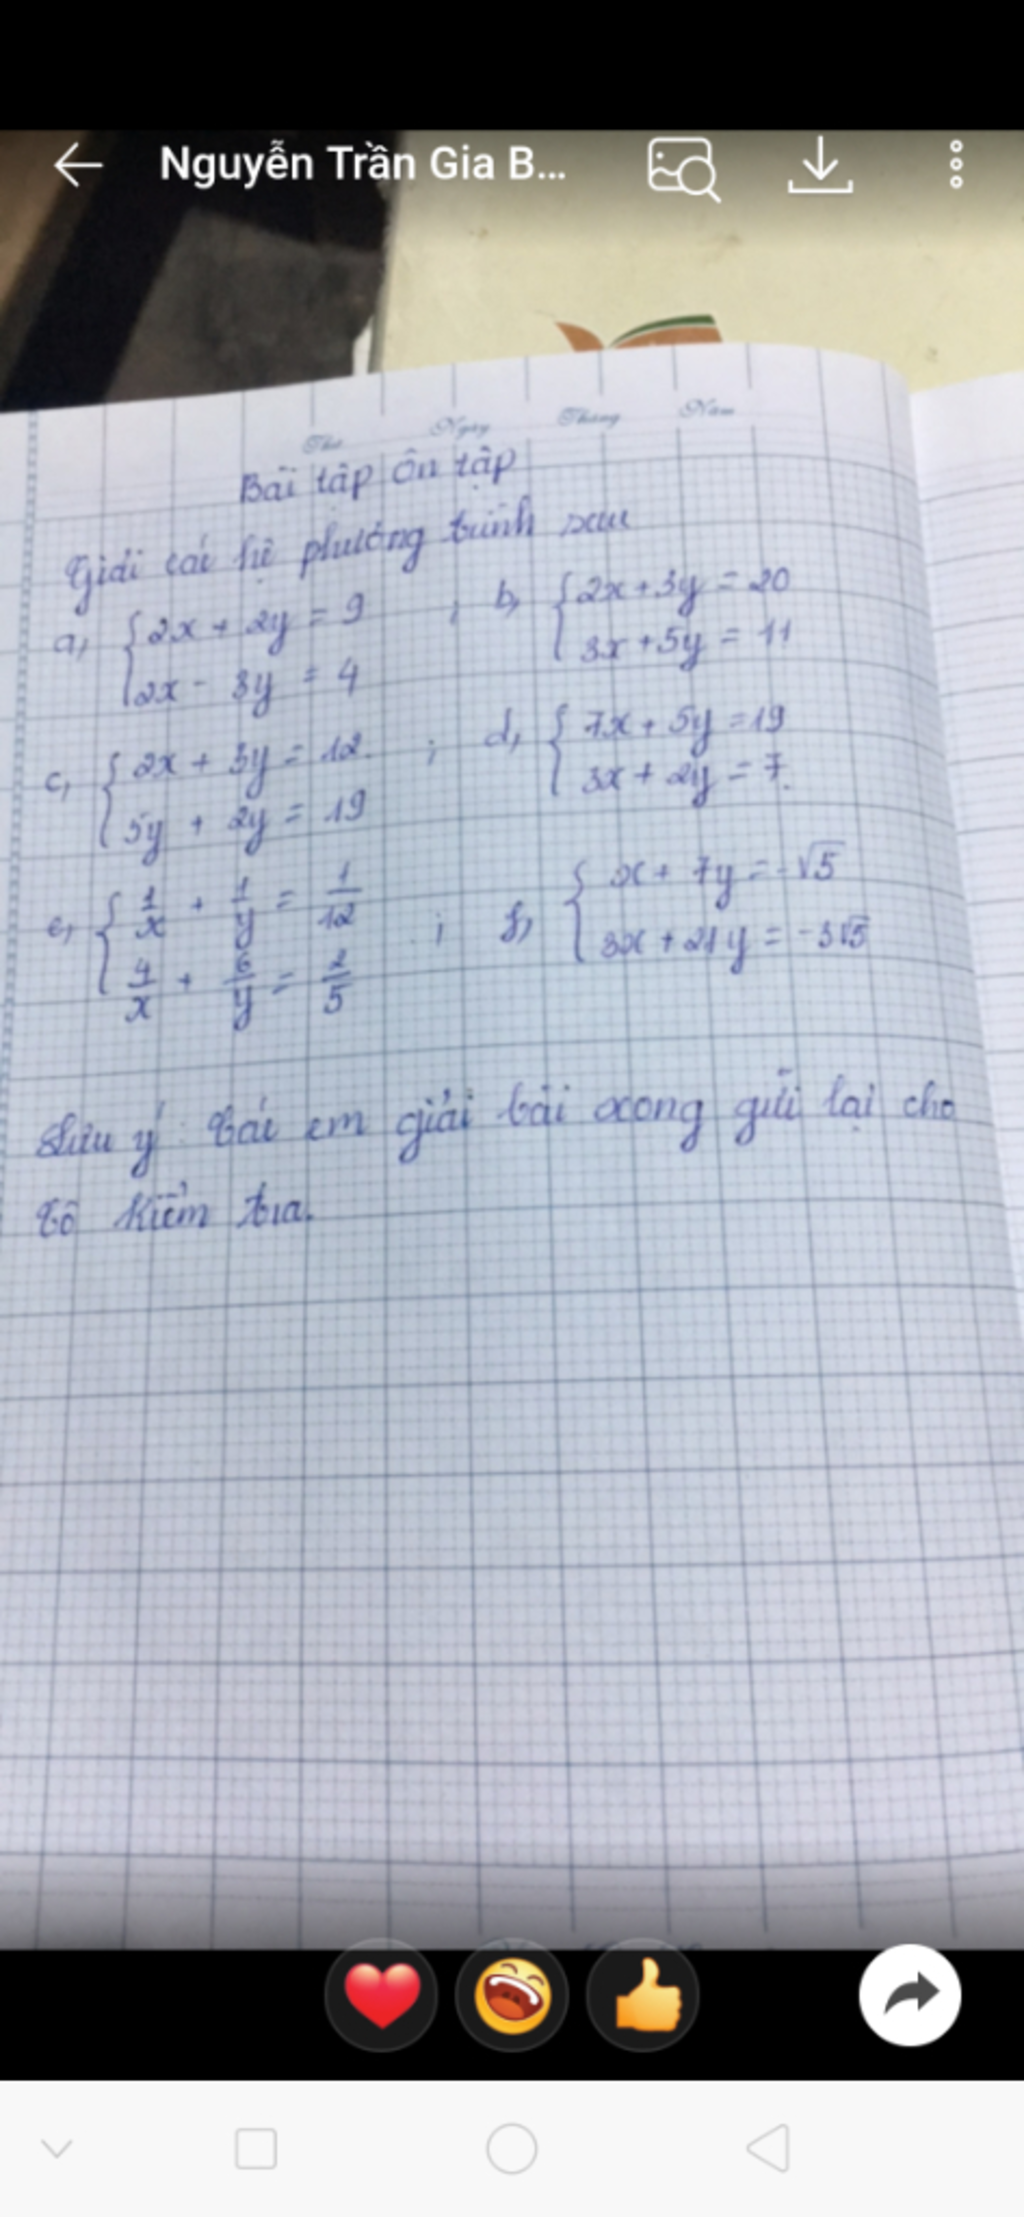 Nguyễn Trần Gia B...
Thứ Ngày Tháng Năm
Bài tập ôn tập
Giải các hệ phương trình sau
a, {2x + 2y = 9 ; b, {2x + 3y = 20
2x - 3y = 4 3x + 5y = 11
c, {2x + 3y = 12. ; d, {7x + 5y = 19
5y + 2y = 19 3x + 2y = 7.
e, {1/x + 1/y = 1/12 ; f, {x + 7y = -√5
4/x + 6/y = 2/5 3x + 21y = -3√5
Lưu ý: Các em giải bài xong gửi lại cho
Cô kiểm tra.